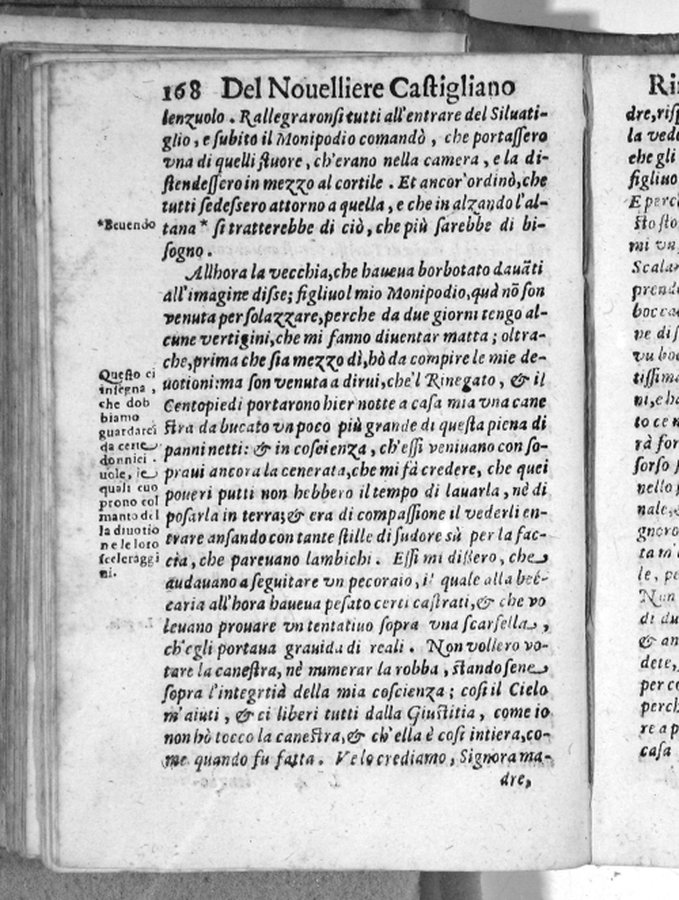 168 Del Nouelliere Castigliano
lenzuolo. Rallegraronsi tutti all'entrare del Siluati-
glio, e subito il Monipodio comandò, che portassero
vna di quelli stuore, ch'erano nella camera, e la di-
stendessero in mezzo al cortile. Et ancor'ordinò, che
tutti sedessero attorno a quella, e che in alzando l'al-
*Beuendo
tana* si tratterebbe di ciò, che più sarebbe di bi-
sogno.
Allhora la vecchia, che haueua borbotato dauãti
all'imagine disse; figliuol mio Monipodio, quà nõ son
venuta per solazzare, perche da due giorni tengo al-
cune vertigini, che mi fanno diuentar matta; oltra-
che, prima che sia mezzo dì, hò da compire le mie de-
uotioni: ma son venuta a dirui, che'l Rinegato, & il
Centopiedi portarono hier notte a casa mia vna cane
stra da bucato vn poco più grande di questa piena di
panni netti: & in coscienza, ch'essi veniuano con so-
praui ancora la cenerata, che mi fà credere, che quei
poueri putti non hebbero il tempo di lauarla, nè di
posarla in terra; & era di compassione il vederli en-
trare ansando con tante stille di sudore sù per la fac-
cia, che pareuano lambichi. Essi mi dissero, che
andauano a seguitare vn pecoraio, il quale alla bec-
caria all'hora haueua pesato certi castrati, & che vo
leuano prouare vn tentatiuo sopra vna scarsella,
ch'egli portaua grauida di reali. Non vollero vo-
tare la canestra, nè numerar la robba, stando sene
sopra l'integrtià della mia coscienza; così il Cielo
m'aiuti, & ci liberi tutti dalla Giustitia, come io
non hò tocco la canestra, & ch'ella è così intiera, co-
me quando fu fatta. Ve lo crediamo, Signora ma-
dre,
Questo ci
insegna,
che dob
biamo
guardarci
da certe
donnici
uole, le
quali cuo
prono col
manto del
la diuotio
ne le loro
sceleraggi
ni.
dre, risp
la ved
che gli
figliuo
E perch
sto sto
mi vn
Scalan
prende
bocca
ve di s
vu boc
tissima
ni, e ha
to ce n
rà for
sorso
nello s
nale, &
gnoro
ta m'
le, pe
Non
di du
& an
dete,
per co
perch
re a p
casa